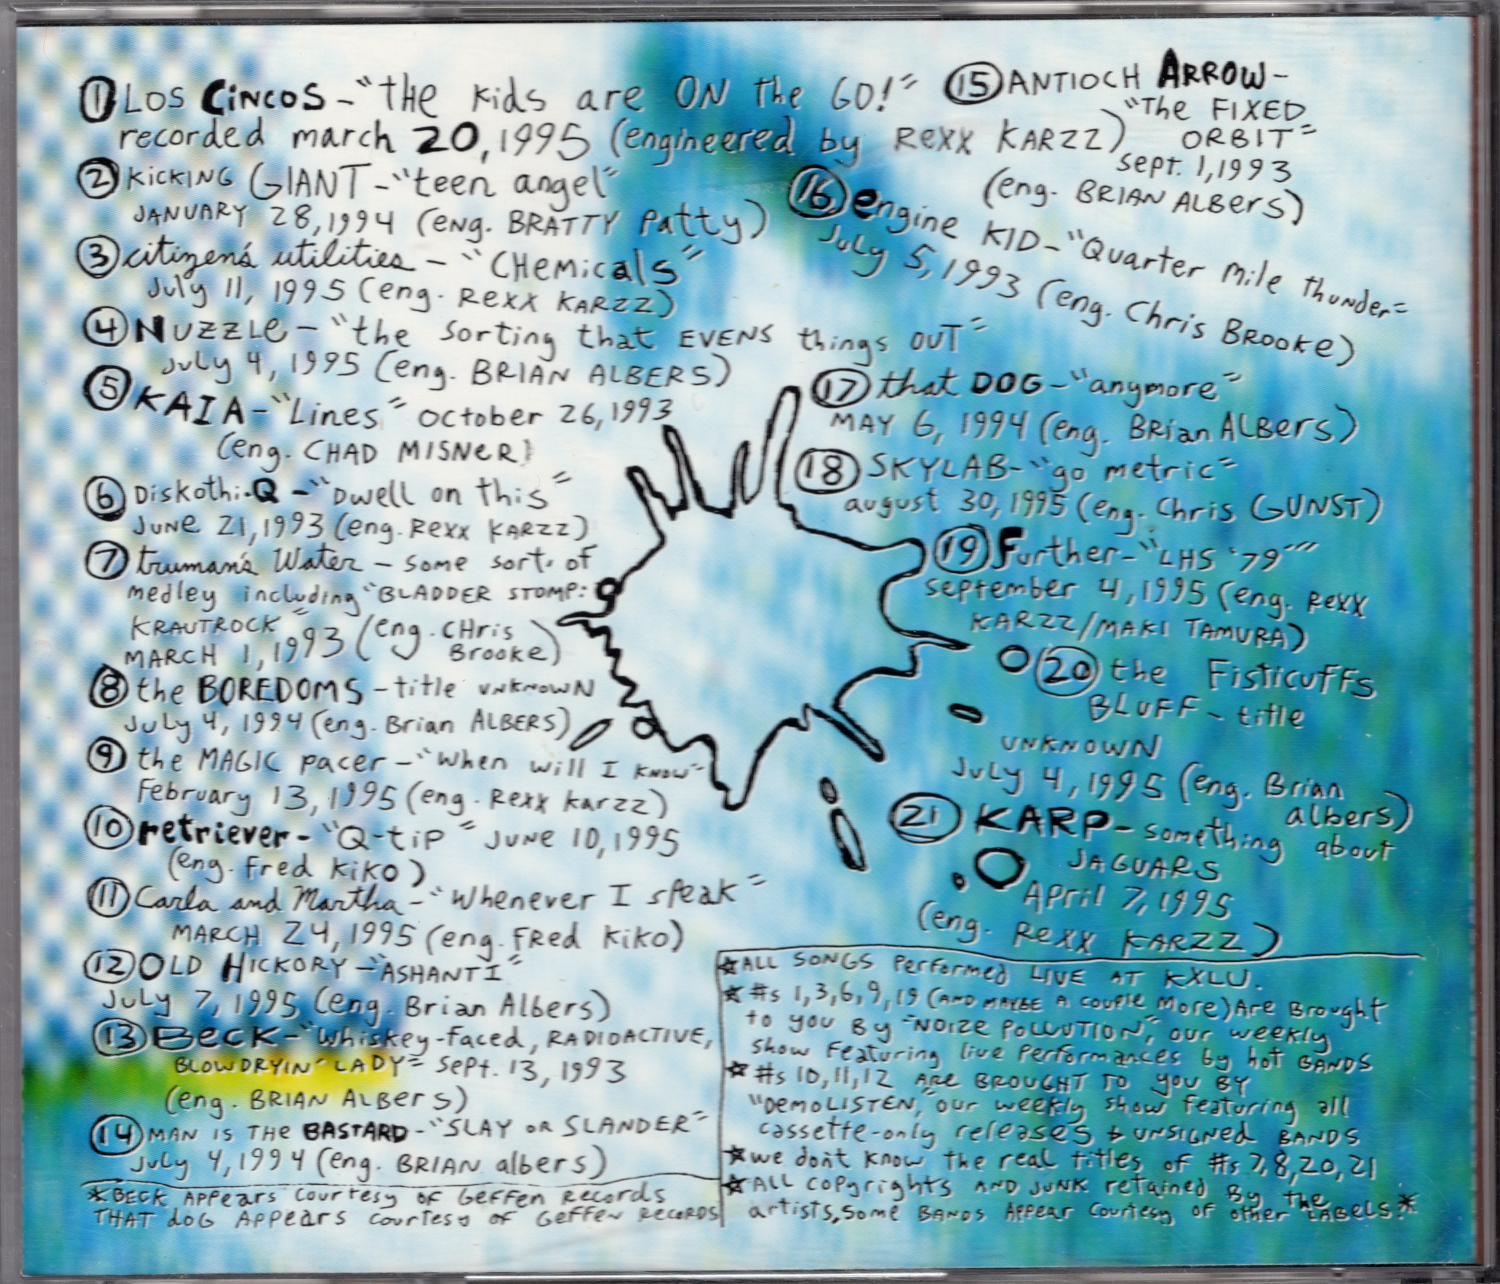 ① LOS CINCOS - "tHE kids are ON the GO!"
recorded march 20, 1995 (engineered by REXX KARZZ)
② KICKING GIANT - "teen angel"
JANUARY 28, 1994 (ENG. BRATTY Patty)
③ citizen's utilities - "CHemicals"
July 11, 1995 (eng. REXX KARZZ)
④ NUZZLE - "the sorting that EVENS things OUT"
July 4, 1995 (eng. BRIAN ALBERS)
⑤ KAIA - "Lines" october 26, 1993
(eng. CHAD MISNER)
⑥ Diskothi-Q - "Dwell on this"
JUNE 21, 1993 (eng. REXX KARZZ)
⑦ truman's Water - some sort of
medley including "BLADDER STOMP:
KRAUTROCK"
MARCH 1, 1993 (eng. CHris
Brooke)
⑧ the BOREDOMS - title UNKNOWN
July 4, 1994 (eng. Brian ALBERS)
⑨ the MAGIC pacer - "When will I KNOW"
February 13, 1995 (eng. Rexx karzz)
⑩ retriever - "Q-tip" JUNE 10, 1995
(eng. Fred KIKO)
⑪ Carla and Martha - "Whenever I speak"
MARCH 24, 1995 (eng. FRED KIKO)
⑫ OLD HICKORY - "ASHANTI"
July 7, 1995 (eng. Brian Albers)
⑬ BECK - "Whiskey-faced, RADIOACTIVE,
BLOWDRYIN' LADY" Sept. 13, 1993
(eng. BRIAN ALBers)
⑭ MAN IS THE BASTARD - "SLAY OR SLANDER"
July 4, 1994 (eng. BRIAN albers)
*BECK APPEARS COURTESY OF GEFFEN RECORDS
THAT dOG APPEARS COURTESY OF GEFFEN RECORDS
⑮ ANTIOCH ARROW -
"The FIXED
ORBIT"
Sept. 1, 1993
(eng. BRIAN ALBERS)
⑯ engine KID - "Quarter mile thunder"
July 5, 1993 (eng. Chris BROOKE)
⑰ that DOG - "anymore"
MAY 6, 1994 (eng. BRian ALBers)
⑱ SKYLAB - "go metric"
august 30, 1995 (eng. Chris GUNST)
⑲ Further - "LHS '79'"
September 4, 1995 (eng. REXX
KARZZ/MAKI TAMURA)
⑳ the Fisticuffs
BLUFF - title
UNKNOWN
July 4, 1995 (eng. Brian
albers)
㉑ KARP - something about
JAGUARS
April 7, 1995
(eng. Rexx KARZZ)
★ALL SONGS Performed LIVE AT KXLU.
★#s 1,3,6,9,19 (AND MAYBE A COUPLE MORE) Are Brought
to you By "NOIZE POLLUTION", our weekly
show featuring live performances by hot BANDS
★#s 10,11,12 ARE BROUGHT TO YOU BY
"DEMOLISTEN," our weekly show featuring all
cassette-only releases & UNSIGNED BANDS
★we don't know the real titles of #s 7,8,20,21
★ALL COPYRIGHTS AND JUNK retained By the
artists, some BANDS APPEAR courtesy of other LABELS.*